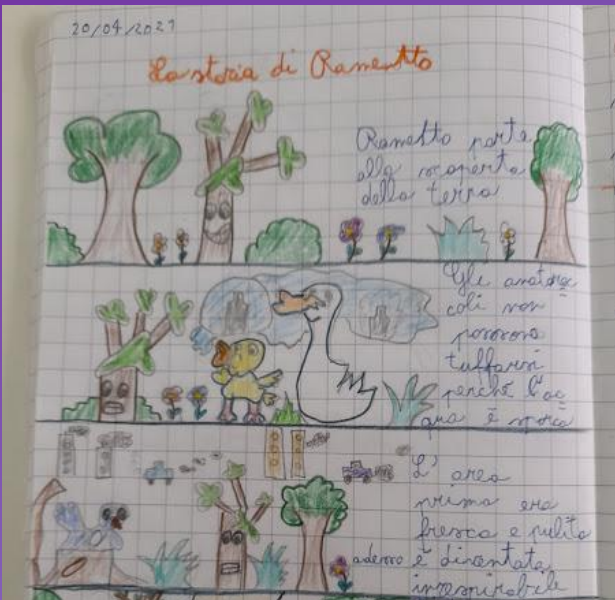 20/04/2021
La storia di Rametto
Rametto parte
alla scoperta
della terra
Gli anatroc
coli non
possono
tuffarsi
perché l'ac
qua è sporca
L'area
prima era
fresca e pulita
adesso è diventata
irrespirabile